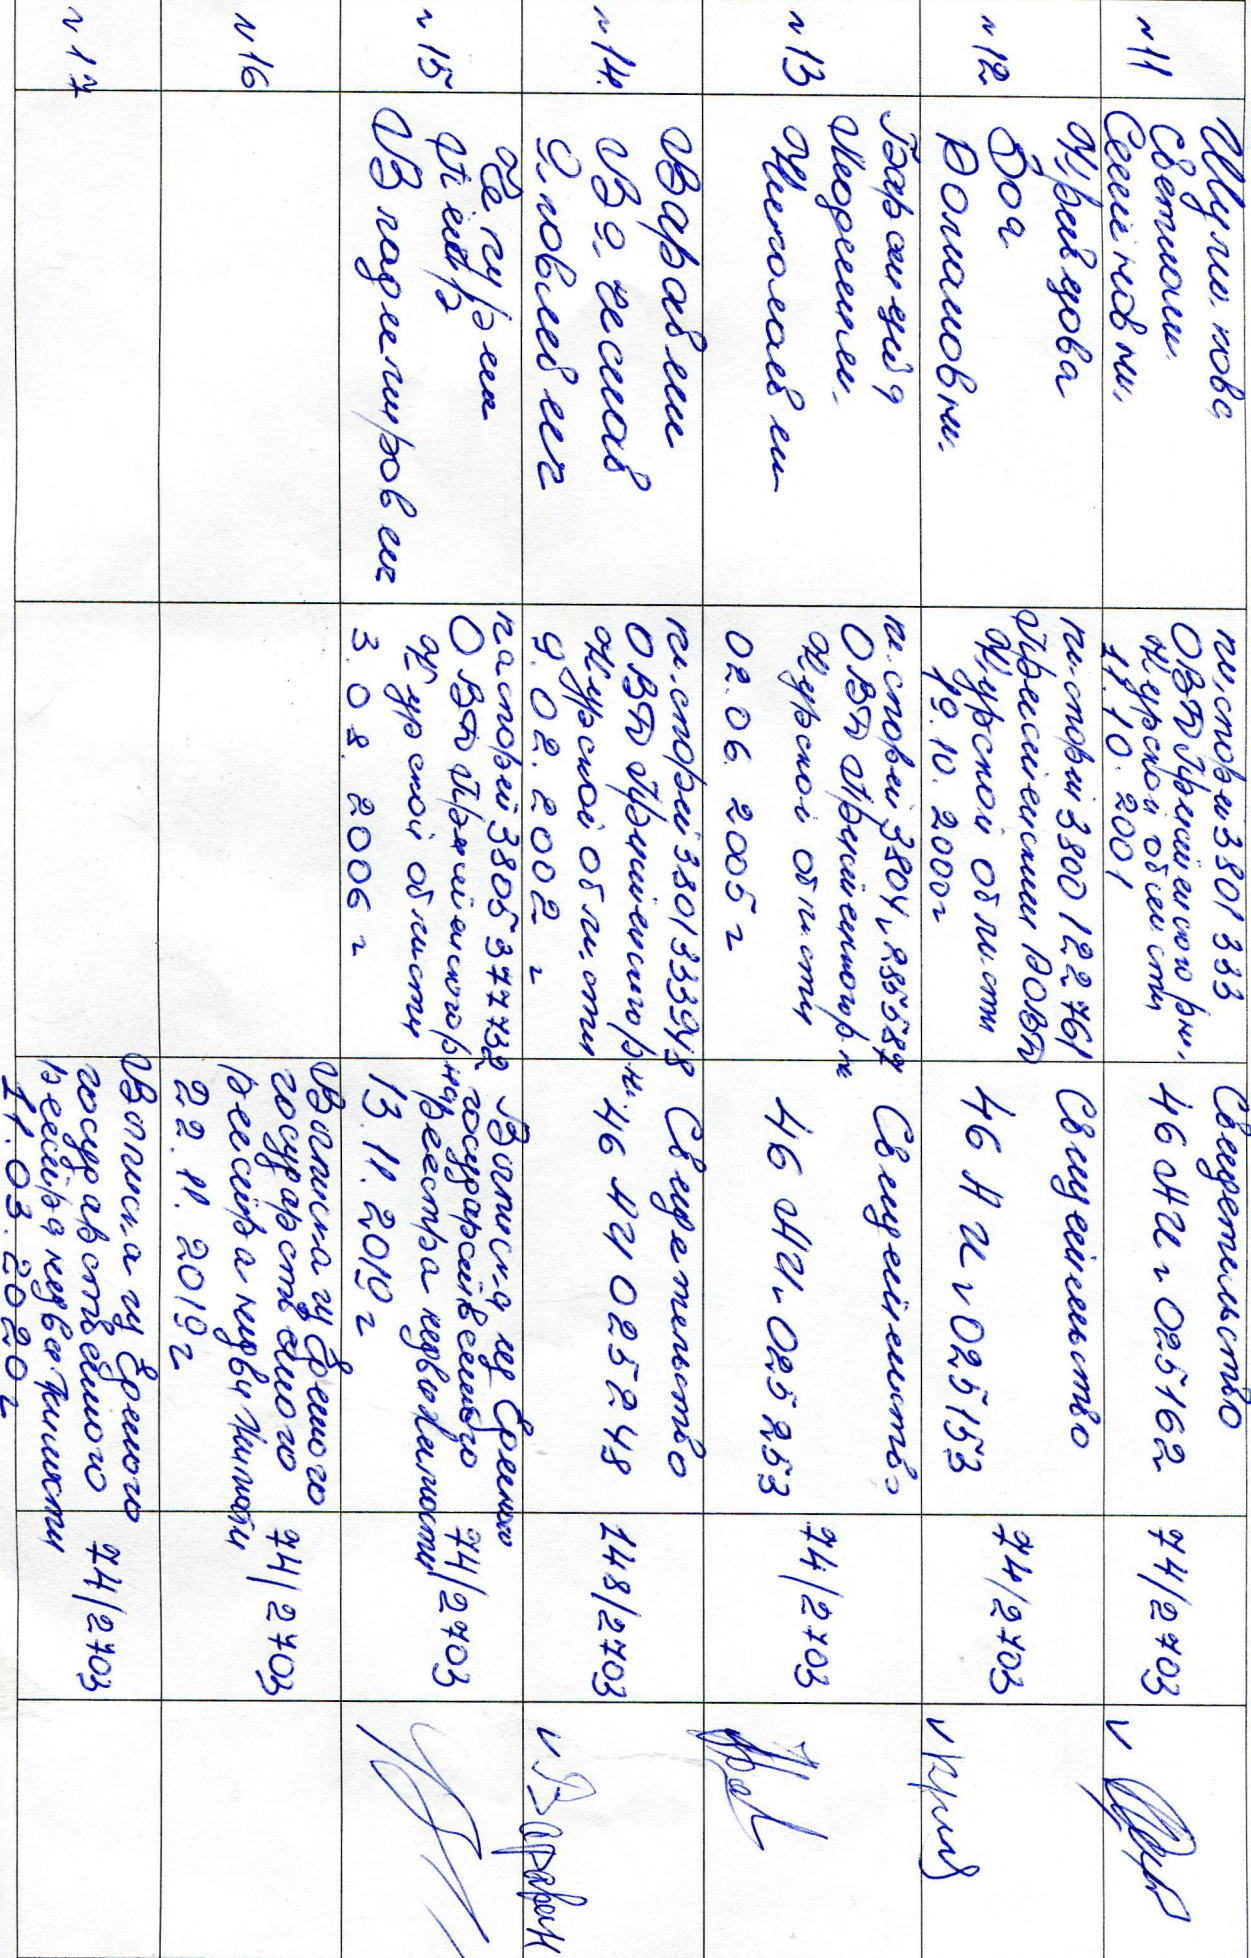 n 11
Шуми нова
Светлан
Семеновн
паспорт 3801 333
ОВД Пристенского рн
Курской области
11.10.2001
Свидетельство
46 АИ n 025162
74/2703
n 12
Кривцова
Зоя
Романовн
паспорт 3800 122761
Пристенским РОВД
Курской области
19.10.2000г
Свидетельство
46 АИ n 025153
74/2703
n 13
Николаевн
паспорт 3804 n 285587
ОВД Пристенского р н
Курской области
02.06.2005 г
Свидетельство
46 АИ n 025253
74/2703
n 14
Варавин
Вячеслав
Яковлевич
паспорт 3801 333948
ОВД Пристенского рн
Курской области
9.02.2002 г
Свидетельство
46 АИ 025248
148/2703
Вараван
n 15
Чегурин
Петр
Владимирович
паспорт 3805 377732
ОВД Пристенского р на
Курской области
3.08.2006 г
Выписка из Единого
государственного
реестра недвижимости
13.11.2019 г
74/2703
n 16
Выписка из Единого
государственного
реестра недвижимости
22.11.2019г
74/2703
n 17
Выписка из Единого
государственного
реестра недвижимости
11.03.2020 г
74/2703